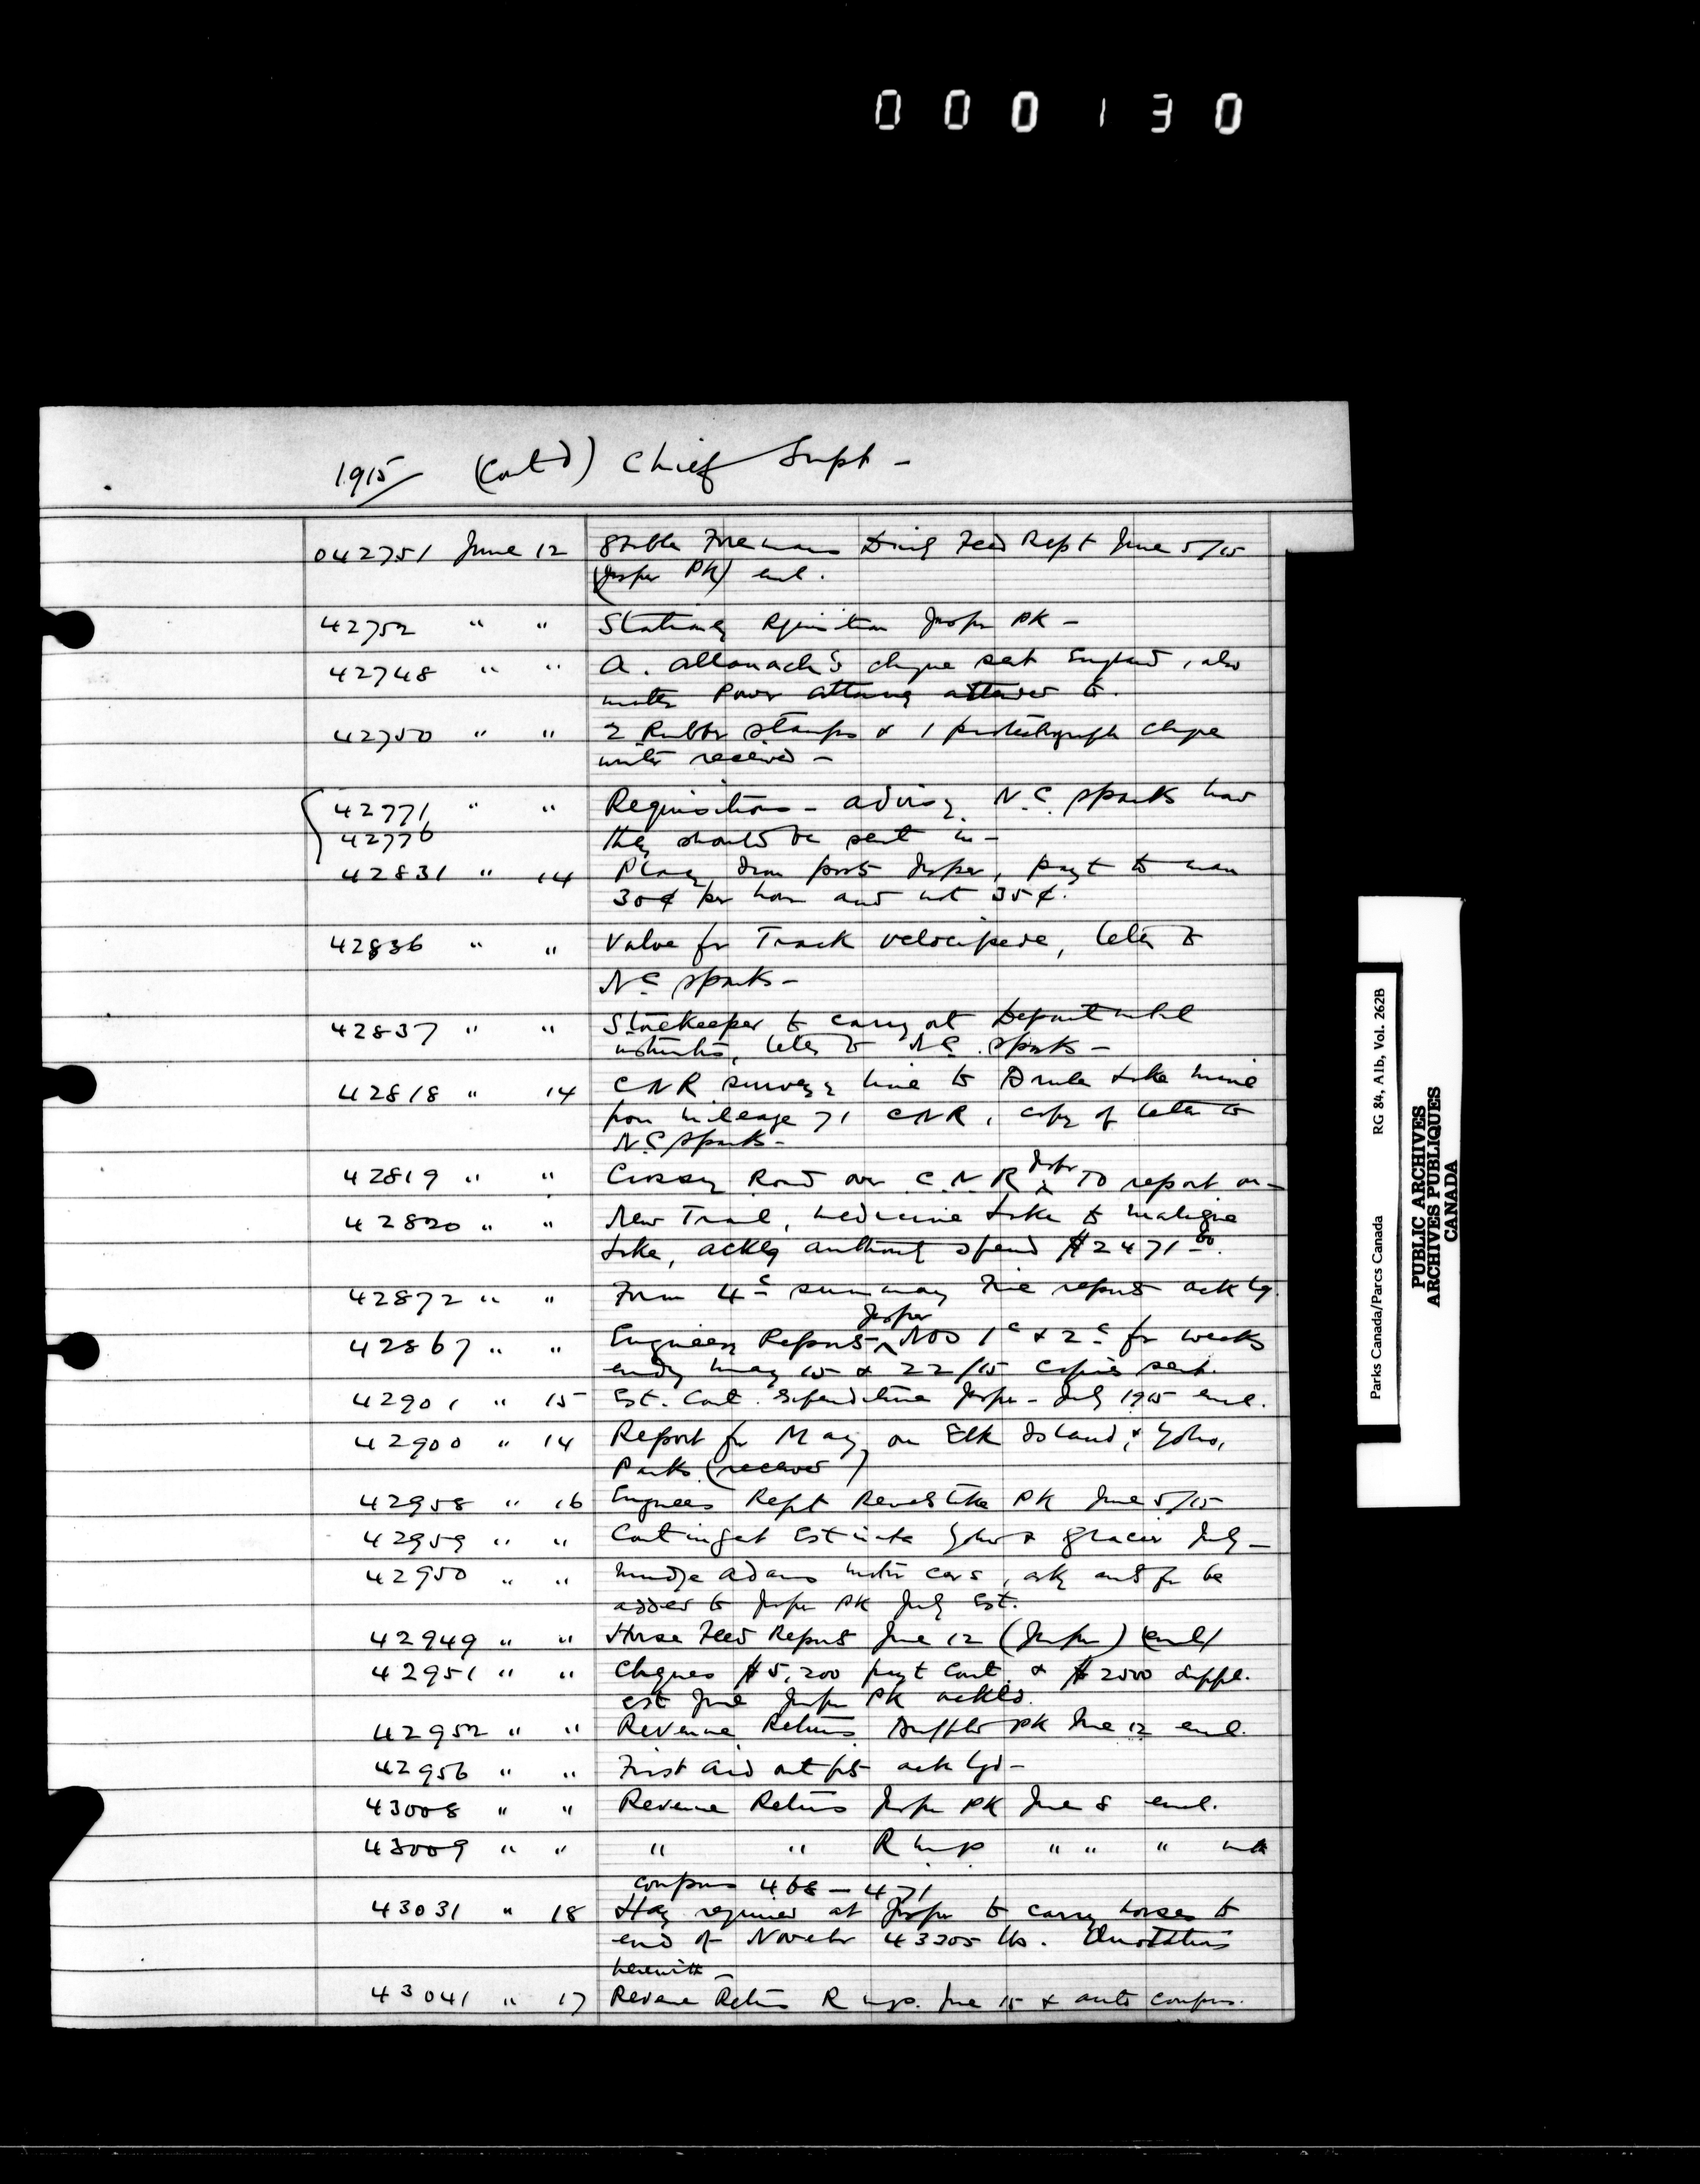 000130
1915 (Contd) Chief Supt -
042751 June 12 Stable Foremans Daily Feed Rept June 5/15
(Jasper PK) encl.
42752 " " Stationery Rquisition Jasper PK -
42748 " " A. Allanach's cheque sent England, also
matter Power Attorney attended to.
42750 " " 2 Rubber stamps & 1 protectograph cheque
writer received -
42771 " " Requisitions - advising N.C. Sparks how
42776 they should be sent in -
42831 " 14 Placing iron posts Jasper, payt to man
30¢ per hour and not 35¢.
42836 " " Valve for Track velocipede, letter to
N.C. Sparks -
42837 " " Storekeeper to carry out Departmental
instructions, letter to N.C. Sparks -
42818 " 14 CNR surveyg line to Brule Lake mine
from mileage 71 CNR, copy of letter to
N.C. Sparks -
42819 " " Crossing Road over C.N.R Jasper TO report on -
42820 " " New Trail, Medicine Lake to Maligne
Lake, acklg authority spend $2471.80.
42872 " " Form 4c summary Fire reports acklg.
42867 " " Engineers Reports Jasper Nos 1c & 2c for weeks
endg May 15 & 22/15 copies sent.
42901 " 15 Est. Cont. Expenditure Jasper - July 1915 encl.
42900 " 14 Report for May on Elk Island, & Yoho,
Parks (received)
42958 " 16 Engineers Rept Revelstoke PK June 5/15
42959 " " Contingent Estimate Yoho & Glacier July -
42950 " " Mudge Adams motor cars, ask amt for be
added to Jasper PK July Est.
42949 " " Horse Feed Reports June 12 (Jasper) (encl)
42951 " " Cheques $5,200 payt Cont. & $2500 Suppl.
est June Jasper PK ackld.
42952 " " Revenue Returns Buffalo PK June 12 encl.
42956 " " First Aid outfits acklgd -
43008 " " Revenue Returns Jasper PK June 8 encl.
43009 " " " " R mps " " " with
coupons 468 - 471
43031 " 18 Hay required at Jasper to carry horses to
end of Novebr 43205 lbs. Quotations
herewith -
43041 " 17 Revenue Returns R mps. June 15 & auto coupons.
Parks Canada/Parcs Canada RG 84, Alb, Vol. 262B
PUBLIC ARCHIVES
ARCHIVES PUBLIQUES
CANADA